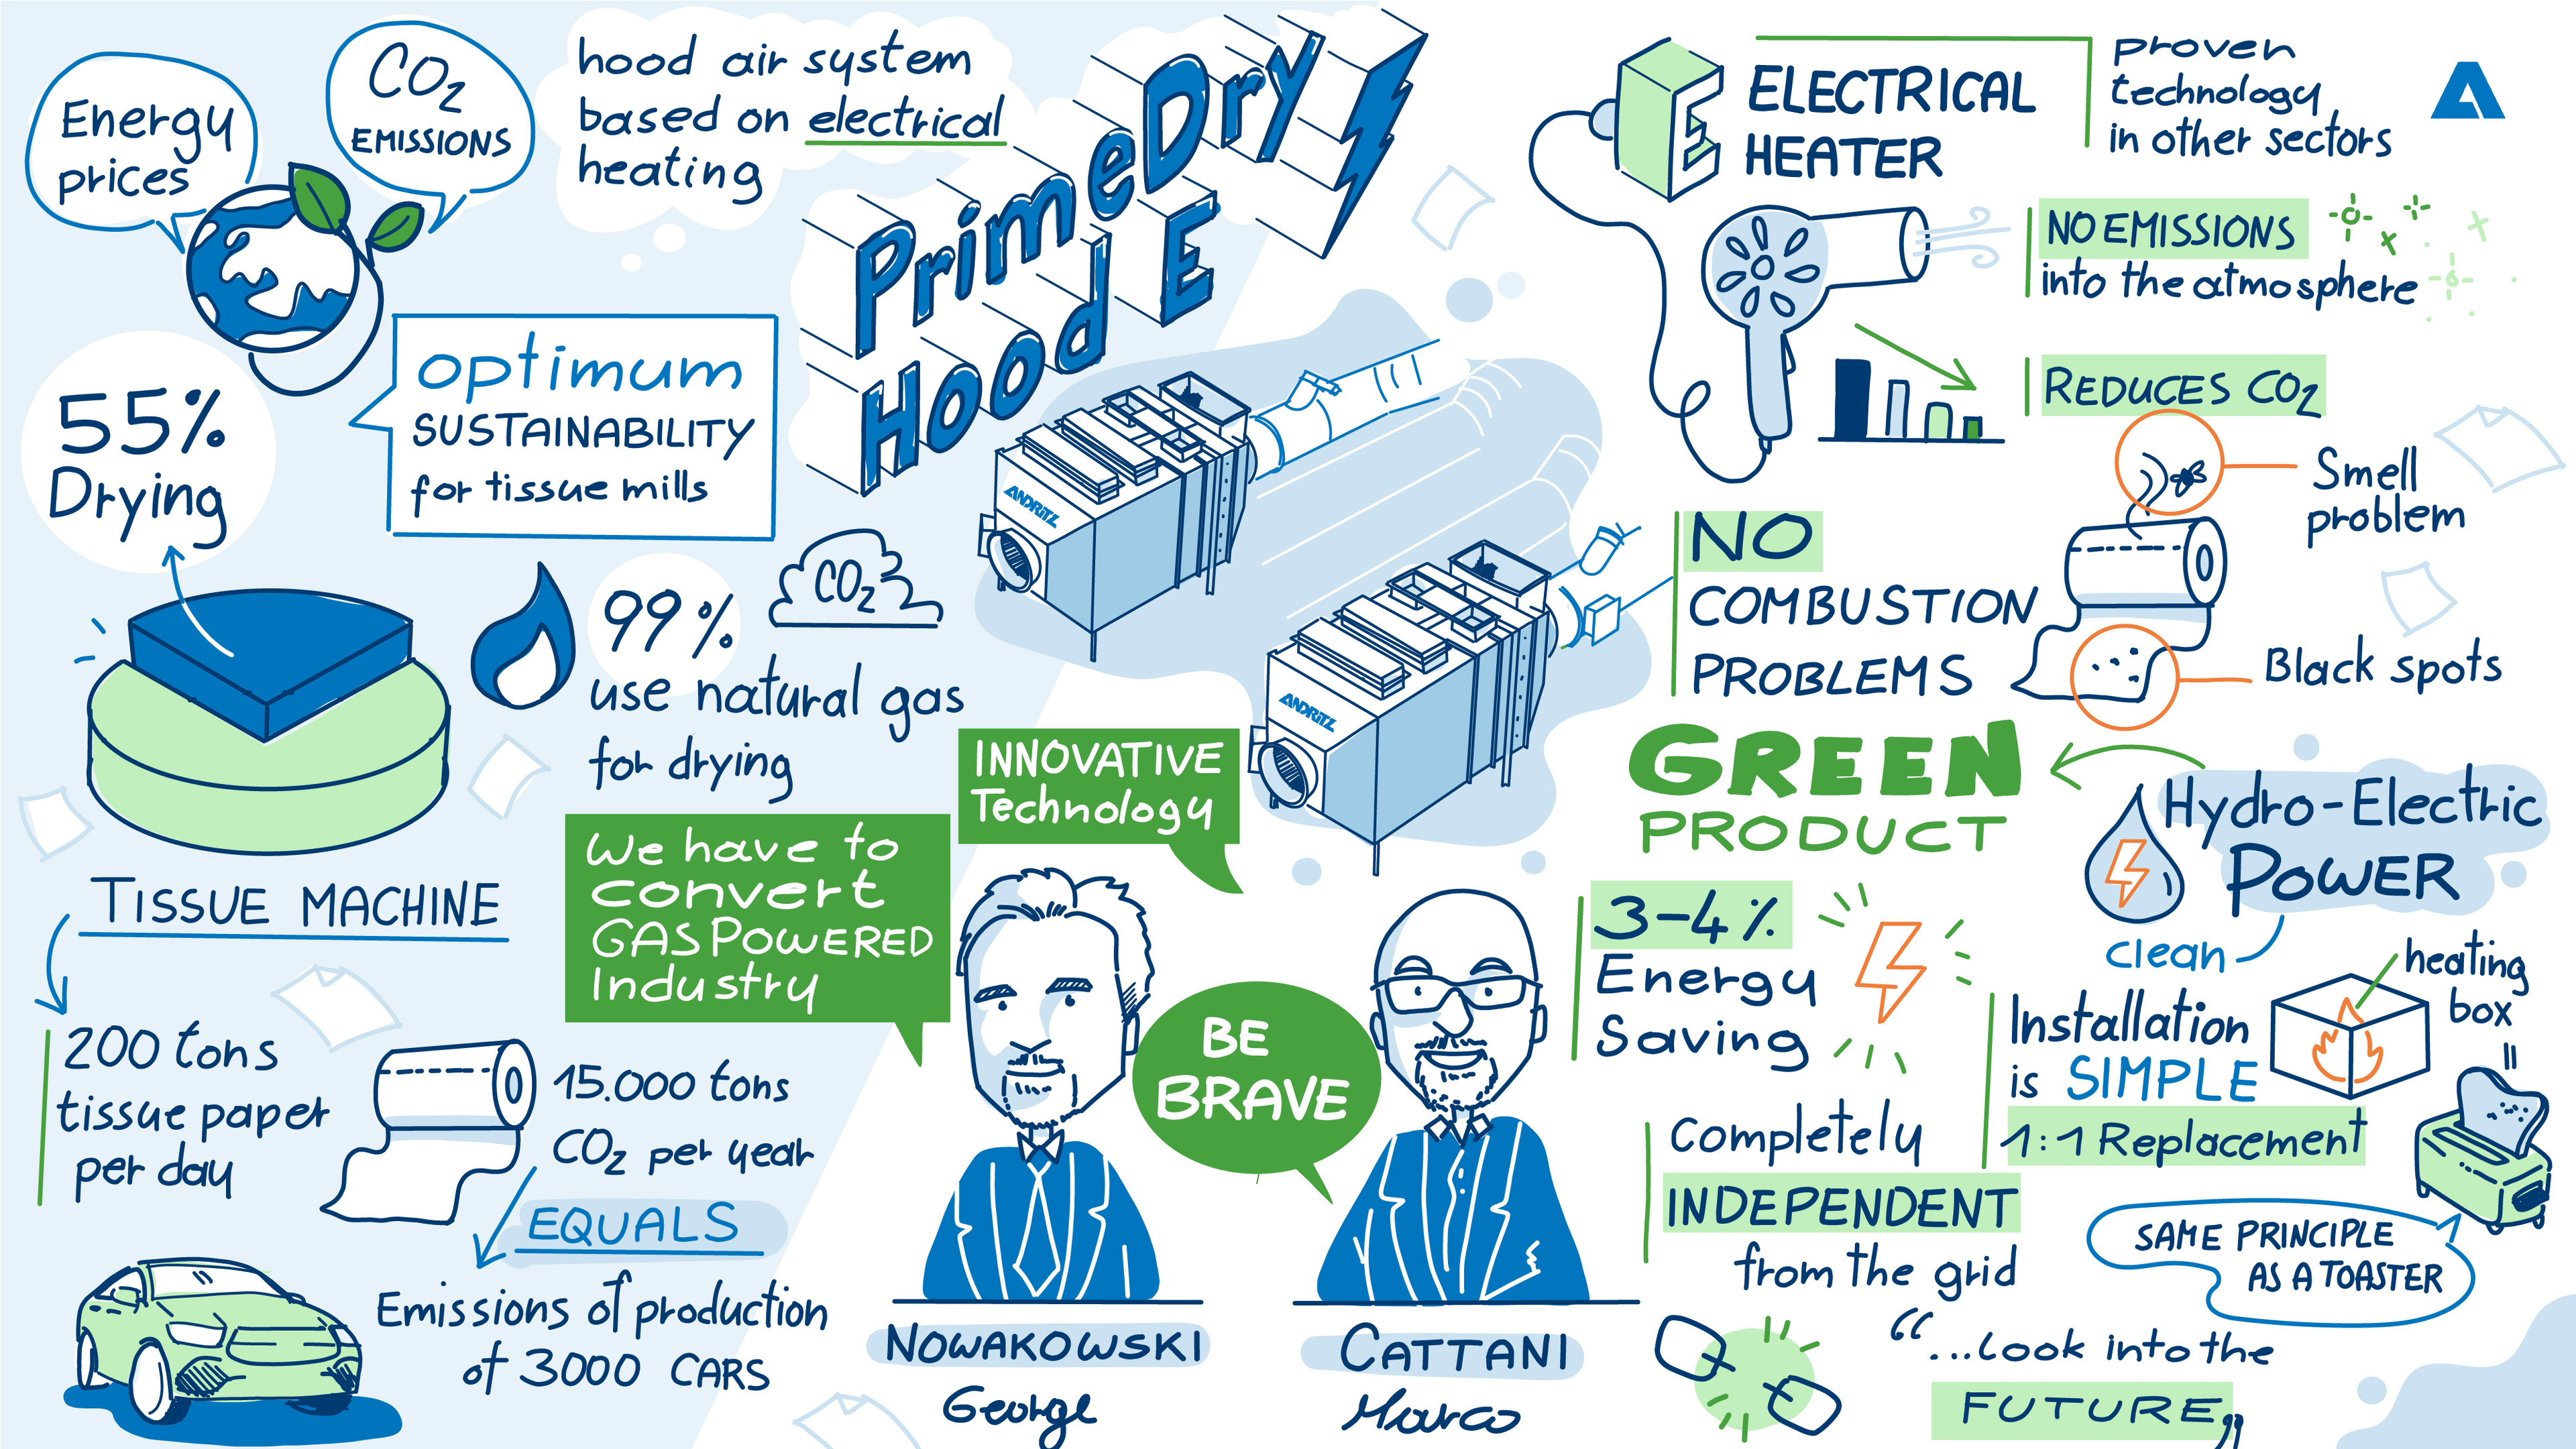 Energy
prices
CO2
EMISSIONS
hood air system
based on electrical
heating
PrimeDry
Hood E
optimum
SUSTAINABILITY
for tissue mills
55%
Drying
99%
use natural gas
for drying
CO2
TISSUE MACHINE
200 tons
tissue paper
per day
15.000 tons
CO2 per year
EQUALS
Emissions of production
of 3000 CARS
ANDRITZ
ANDRITZ
INNOVATIVE
Technology
We have to
convert
GAS POWERED
Industry
BE
BRAVE
NOWAKOWSKI
George
CATTANI
Marco
E
ELECTRICAL
HEATER
proven
technology
in other sectors
NO EMISSIONS
into the atmosphere
REDUCES CO2
NO
COMBUSTION
PROBLEMS
Smell
problem
Black spots
GREEN
PRODUCT
Hydro-Electric
POWER
clean
3-4%
Energy
Saving
Installation
is SIMPLE
1:1 Replacement
heating
box
=
SAME PRINCIPLE
AS A TOASTER
Completely
INDEPENDENT
from the grid
“...Look into the
FUTURE„